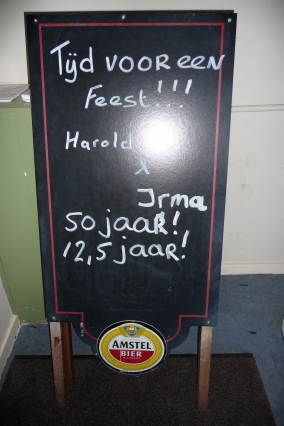 Tijd VOOR EEN
Feest!!!
Harold
X
Irma
50 jaar!
12,5 jaar!
AMSTEL
BIER